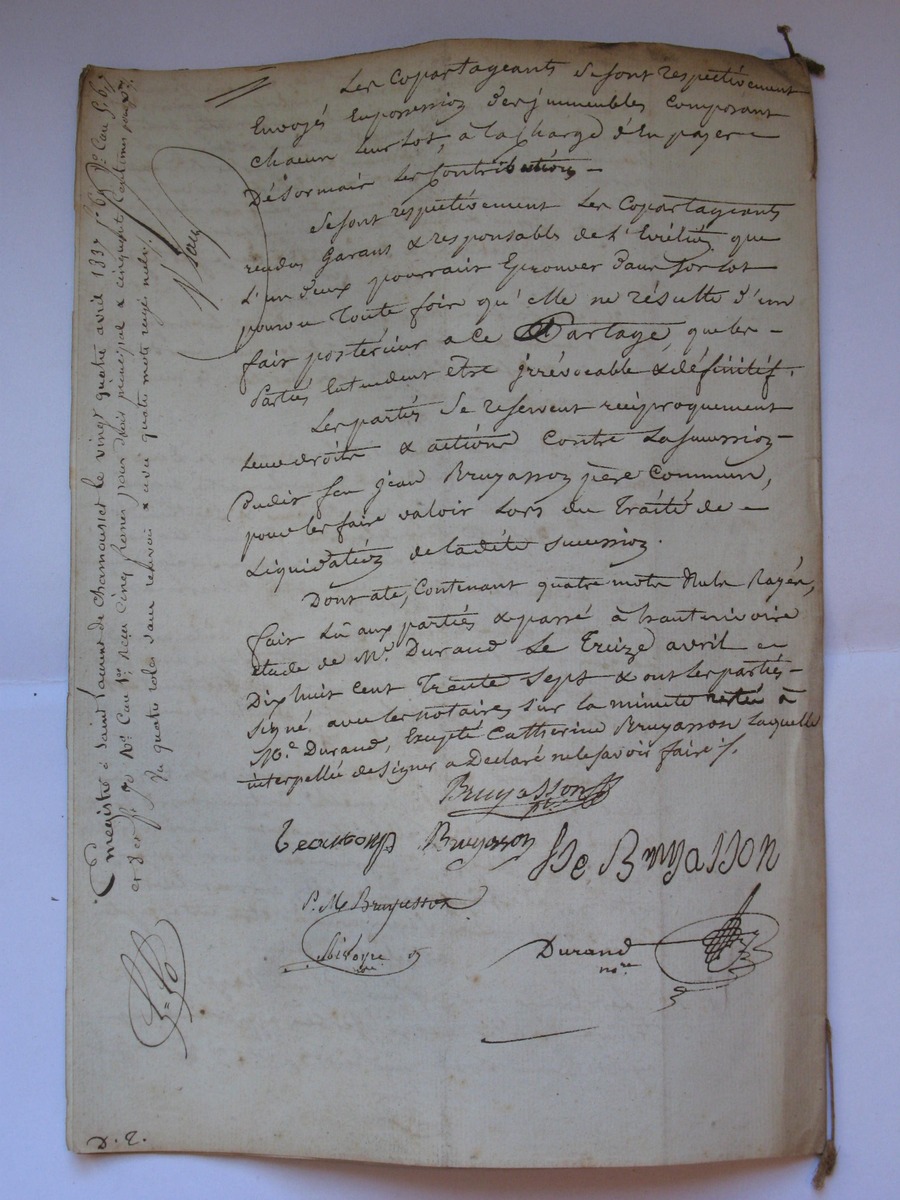 Les Copartageants Se sont respectivement
Envoyés En possession des jmmeubles Composant
chacun leur Lot, a la Charge d'En payer
Désormais Les Contributions
Se sont respectivement Les Copartageants
rendus garans & responsables de L'Eviction que
L'un d'eux pourrait Eprouver dans son Lot
pourvu Toute fois qu'elle ne résulte d'un
fait postérieur a Ce Partage, que les
Parties Entendent être jrrévocable & définitif.
Les parties Se reservent réciproquement
Leurs droits & actions Contre La succession
dudit feu jean Bruyasson père Commun,
pour les faire valoir Lors du Traité de
Liquidation de ladite succession.
Dont ate, Contenant quatre mots Nuls Rayés,
fait Lû aux parties & passé à hauterivoire
étude de Me. Durand Le Treize avril
Dix huit cent Trente Sept & ont Les parties
signé avec les notaires sur la minute restée à
Me. Durand, Excepté Catherine Bruyasson Laquelle
interpellée de signer a Déclaré ne le savoir faire ./.
Bruyasson
Bruyasson
Bruyasson
P. M. Bruyasson
Durand
nore
Enregistré à Saint Laurent de Chamousset le vingt quatre avril 1837 fo. 69 Vo. Case
Reçu Cinq francs pour droit principal & cinquante centimes pour
Du quatre rôles sans renvoi & avec quatre mots rayés nuls.
D. E.